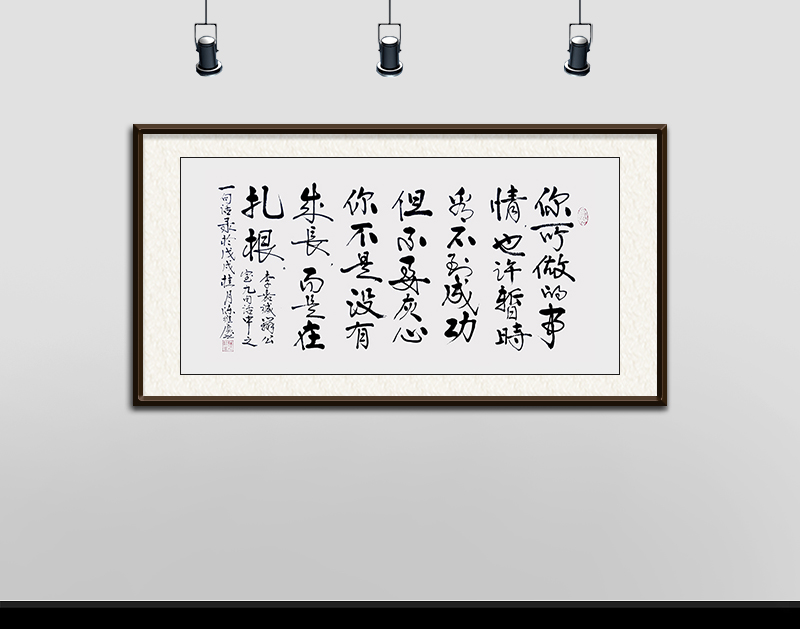 你所做的事
情也许暫時
看不到成功
但不要灰心
你不是没有
成長而是在
扎根
李嘉诚辦公
室九句话中之
一句话录於戊戌桂月